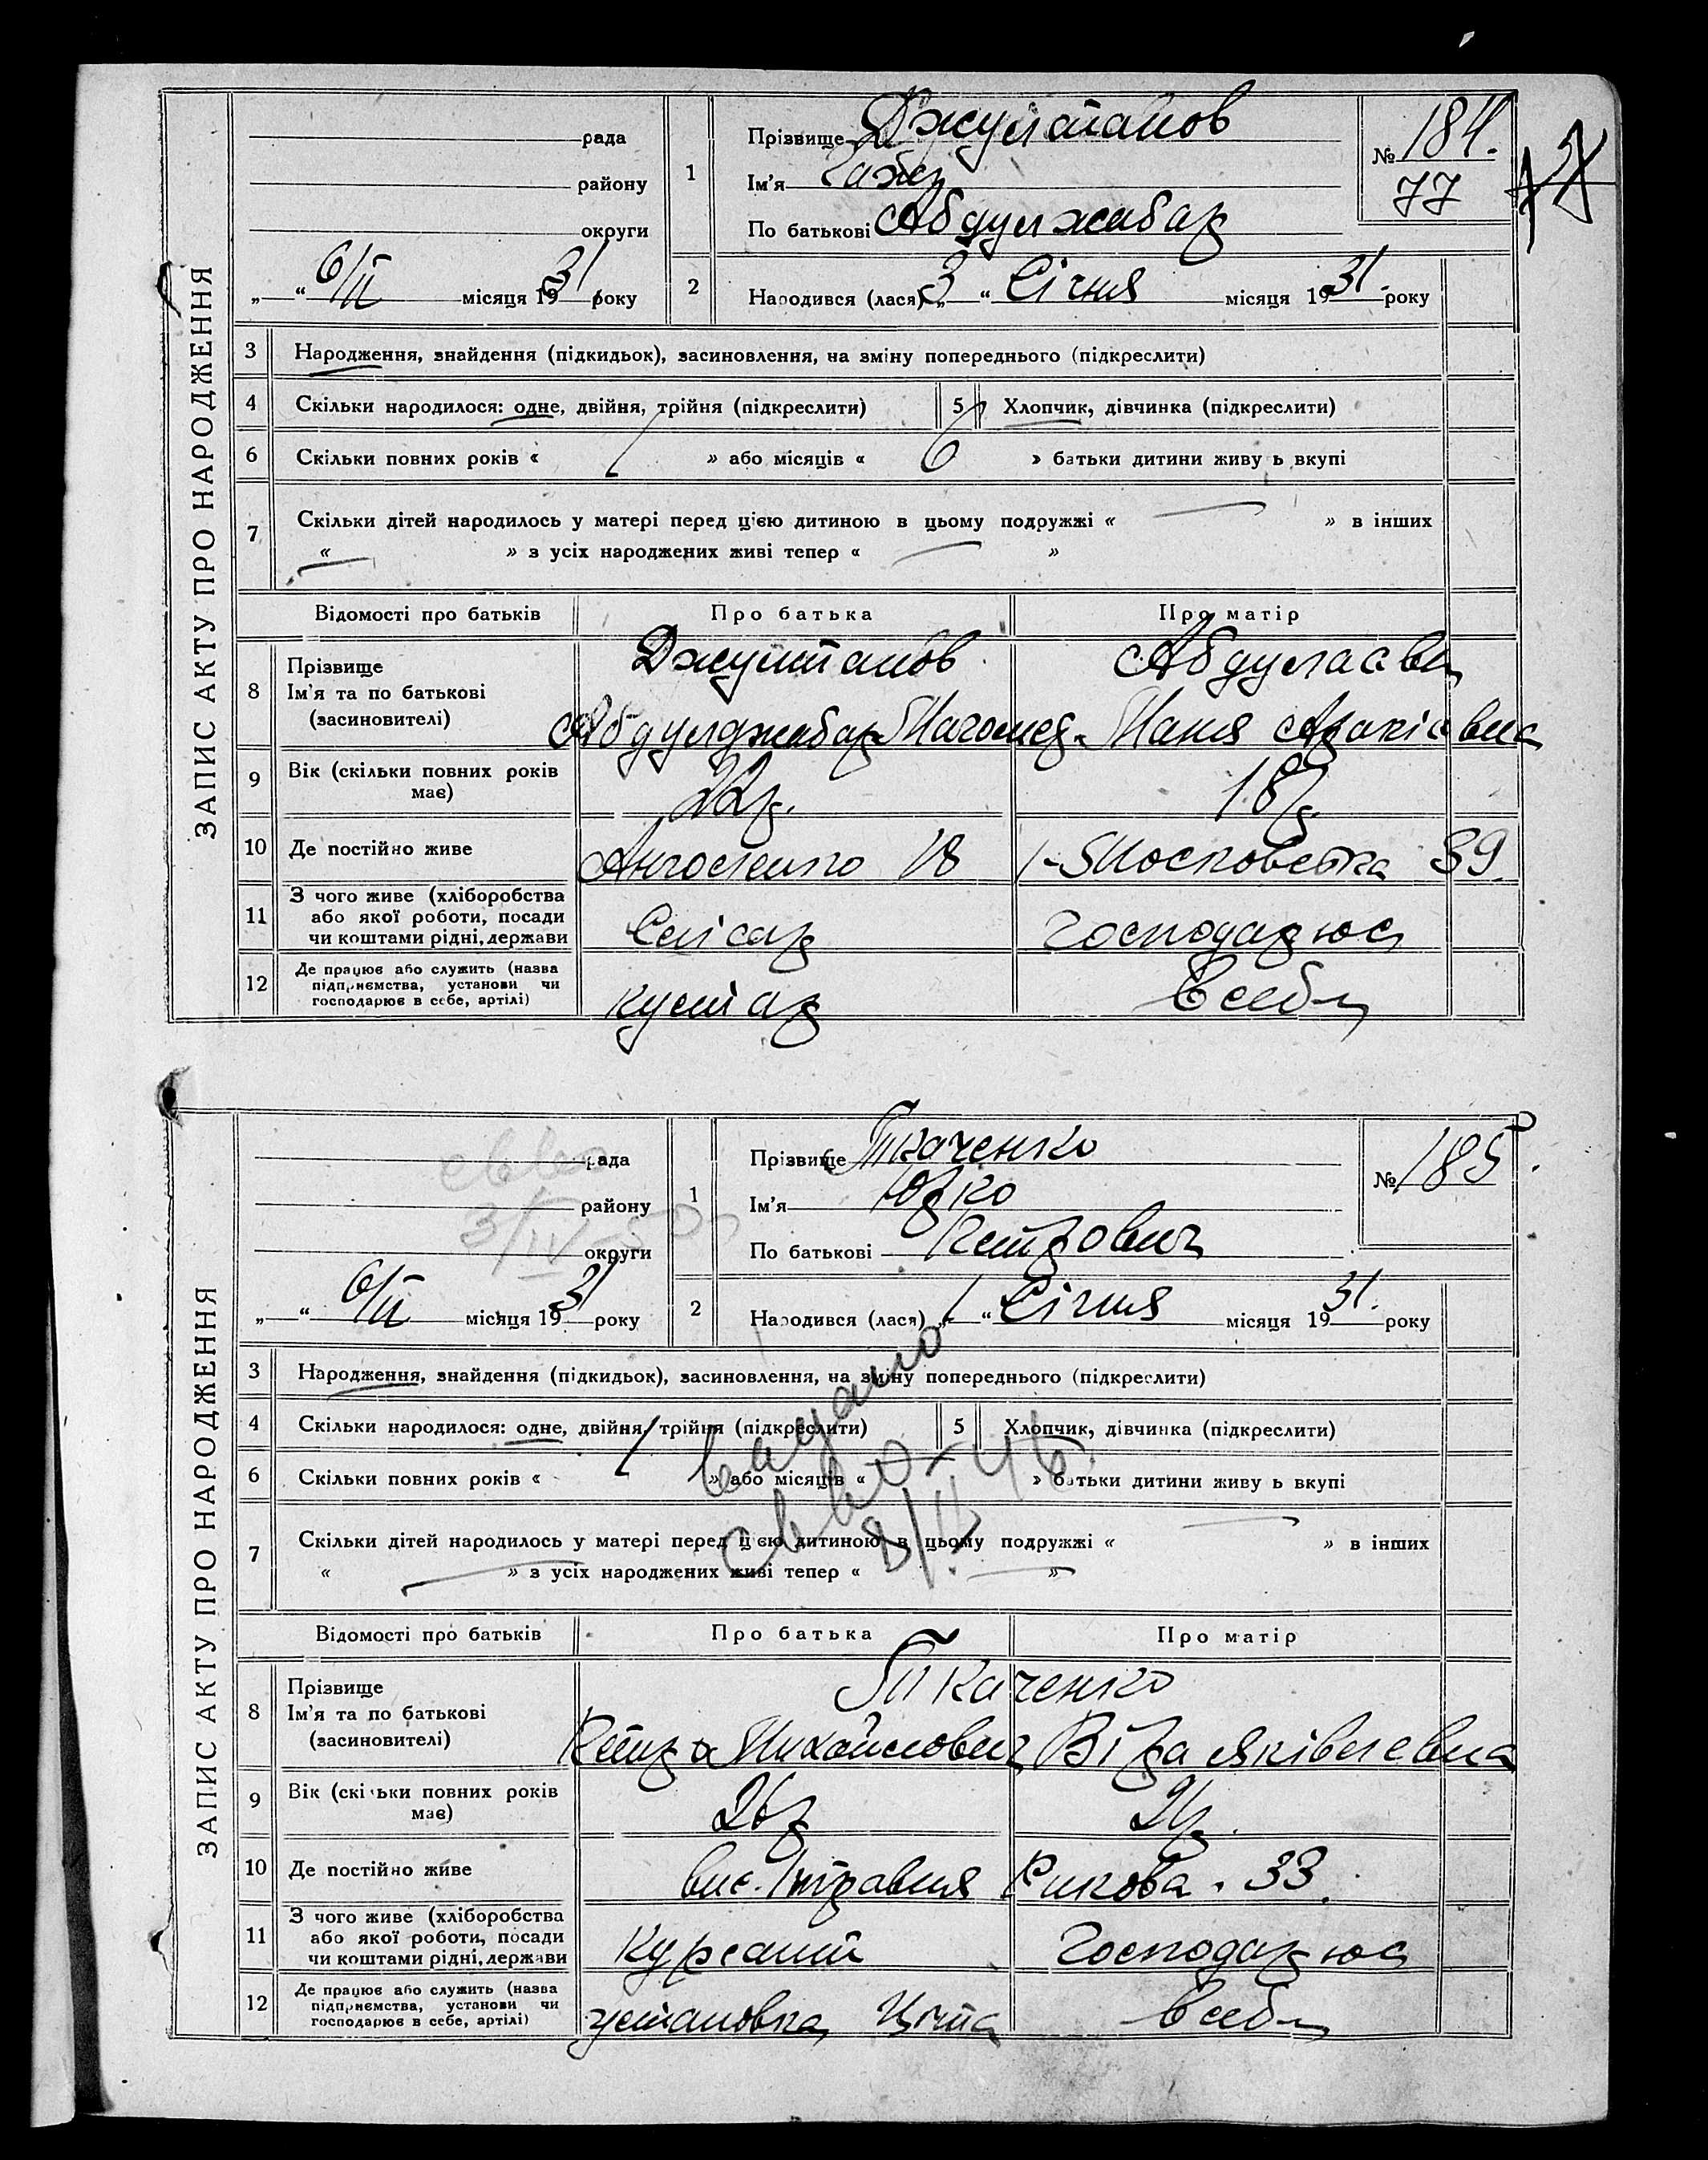 ЗАПИС АКТУ ПРО НАРОДЖЕННЯ
рада
району
округи
„ “ 6/II місяця 1931 року
1
Прізвище Джултанов
Ім'я
По батькові Абдулжабар
№ 184.
77
2
Народився (лася) „3“ Січня місяця 1931. року
3 Народження, знайдення (підкидьок), засиновлення, на зміну попереднього (підкреслити)
4 Скільки народилося: одне, двійня, трійня (підкреслити) 5 Хлопчик, дівчинка (підкреслити)
6 Скільки повних років « » або місяців « 6 » батьки дитини живу ь вкупі
7 Скільки дітей народилось у матері перед цією дитиною в цьому подружжі « — » в інших
« — » з усіх народжених живі тепер « — »
Відомості про батьків Про батька Про матір
8 Прізвище
Ім'я та по батькові
(засиновителі)
Джултанов
Абдулджабар Магомед.
Абдулаєва
Маня
9 Вік (скільки повних років має) 22р. 18р.
10 Де постійно живе 18 1-Московська 39.
11 З чого живе (хліборобства
або якої роботи, посади
чи коштами рідні, держави
Слісар Господарює
12 Де працює або служить (назва
підприємства, установи чи
господарює в себе, артілі)
кустар в себе
ЗАПИС АКТУ ПРО НАРОДЖЕННЯ
рада
району
округи
3/IV-50р
„ “ 6/II місяця 1931 року
1
Прізвище Ткаченко
Ім'я Юрко
По батькові Петрович
№ 185
2
Народився (лася) „1“ Січня місяця 1931. року
3 Народження, знайдення (підкидьок), засиновлення, на зміну попереднього (підкреслити)
4 Скільки народилося: одне, двійня, трійня (підкреслити) 5 Хлопчик, дівчинка (підкреслити)
6 Скільки повних років « 1 » або місяців « » батьки дитини живу ь вкупі
7 Скільки дітей народилось у матері перед цією дитиною в цьому подружжі « — » в інших
« — » з усіх народжених живі тепер « — »
Відомості про батьків Про батька Про матір
8 Прізвище
Ім'я та по батькові
(засиновителі)
Ткаченко
Петро Михайлович Віра Яківлевна
9 Вік (скільки повних років має) 26р
10 Де постійно живе вис. 1 травня Рикова. 33.
11 З чого живе (хліборобства
або якої роботи, посади
чи коштами рідні, держави
курсант Господарює
12 Де працює або служить (назва
підприємства, установи чи
господарює в себе, артілі)
установка Цита в себе